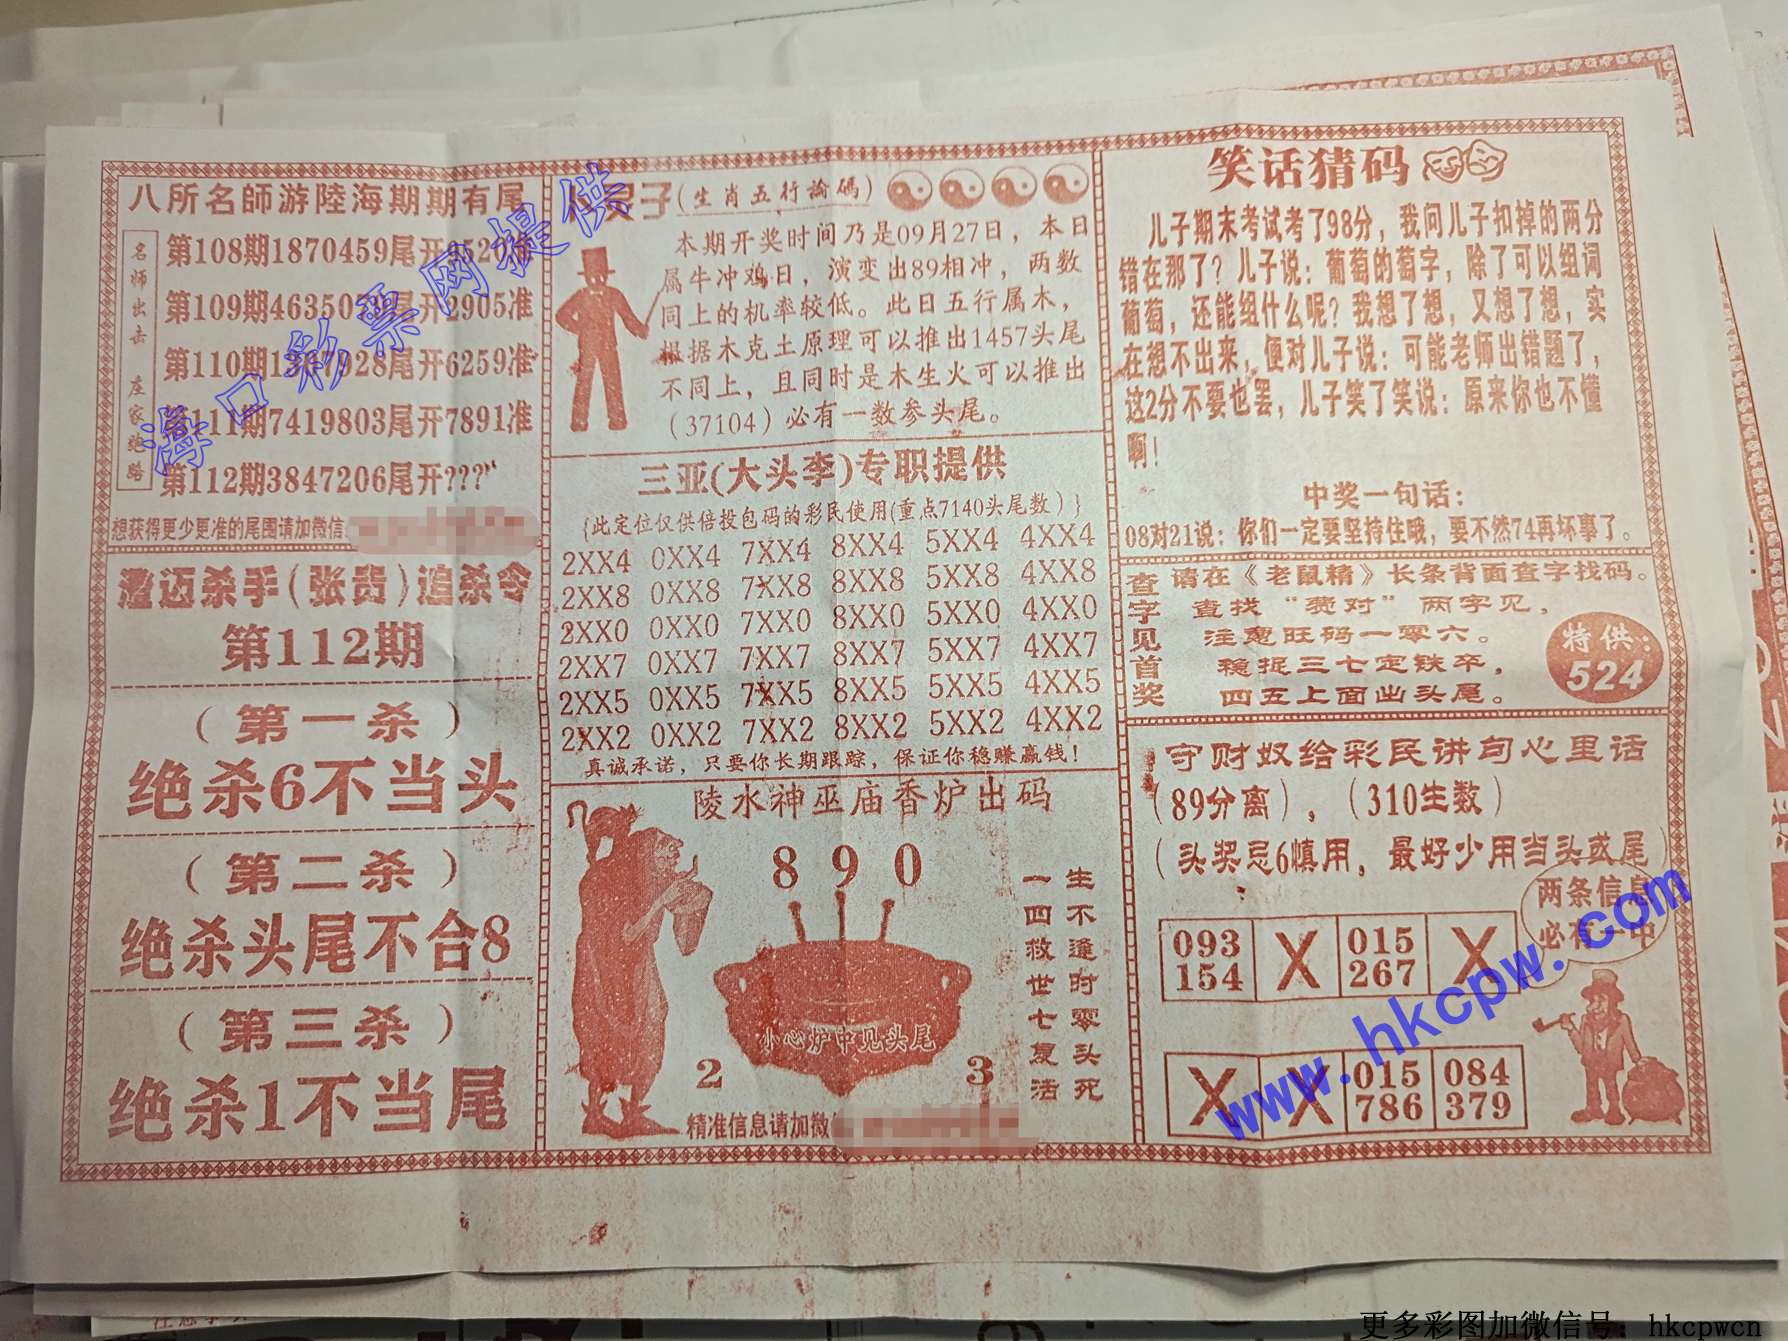 八所名師游陸海期期有尾
名师出击 庄家绝路
第108期1870459尾开9520准
第109期4635072尾开2905准
第110期1367928尾开6259准
第111期7419803尾开7891准
第112期3847206尾开???
想获得更少更准的尾围请加微信:
澄迈杀手(张贵)追杀令
第112期
(第一杀)
绝杀6不当头
(第二杀)
绝杀头尾不合8
(第三杀)
绝杀1不当尾
子(生肖五行論碼)
本期开奖时间乃是09月27日,本日
属牛冲鸡日,演变出89相冲,两数
同上的机率较低。此日五行属木,
根据木克土原理可以推出1457头尾
不同上,且同时是木生火可以推出
(37104)必有一数参头尾。
三亚(大头李)专职提供
{此定位仅供倍投包码的彩民使用(重点7140头尾数)}
2XX4 0XX4 7XX4 8XX4 5XX4 4XX4
2XX8 0XX8 7XX8 8XX8 5XX8 4XX8
2XX0 0XX0 7XX0 8XX0 5XX0 4XX0
2XX7 0XX7 7XX7 8XX7 5XX7 4XX7
2XX5 0XX5 7XX5 8XX5 5XX5 4XX5
2XX2 0XX2 7XX2 8XX2 5XX2 4XX2
真诚承诺,只要你长期跟踪,保证你稳赚赢钱!
陵水神巫庙香炉出码
8 9 0
生不逢时零头死
一四救世七复活
小心炉中见头尾
2 3
精准信息请加微
笑话猜码
儿子期末考试考了98分,我问儿子扣掉的两分
错在那了?儿子说:葡萄的萄字,除了可以组词
葡萄,还能组什么呢?我想了想,又想了想,实
在想不出来,便对儿子说:可能老师出错题了,
这2分不要也罢,儿子笑了笑说:原来你也不懂
啊!
中奖一句话:
08对21说:你们一定要坚持住哦,要不然74再坏事了。
查字见首奖
请在《老鼠精》长条背面查字找码。
查找“赞对”两字见,
注意旺码一零六。
稳捉三七定铁卒,
四五上面出头尾。
特供:
524
守财奴给彩民讲句心里话
(89分离),(310生数)
(头奖忌6慎用,最好少用当头或尾)
两条信息
必有一中
093 X 015 X
154 267
X X 015 084
786 379
海口彩票网提供
www.hkcpw.com
更多彩图加微信号:hkcpwcn